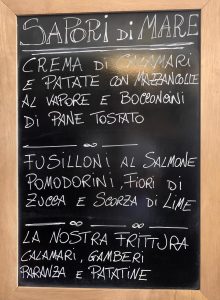 SAPORI DI MARE
CREMA DI CALAMARI
E PATATE CON MAZZANCOLLE
AL VAPORE E BOCCONCINI
DI PANE TOSTATO
FUSILLONI AL SALMONE
POMODORINI, FIORI DI
ZUCCA E SCORZA DI LIME
LA NOSTRA FRITTURA
CALAMARI, GAMBERI
PARANZA E PATATINE